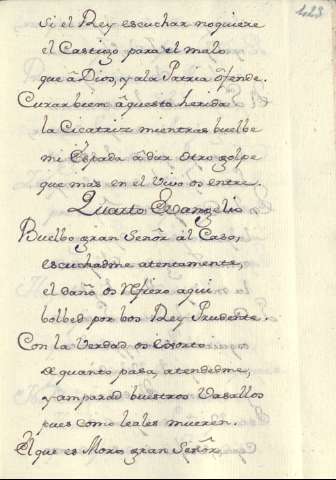 123
Si el Rey escuchar no quiere
el Castigo para el malo
que â Dios, y ala Patria ofende.
Curar bien âquesta herida
la Cicatriz mientras buelbe
mi Espada â dar otro golpe
que mas en el Vivo os entre.
Quarto Evangelio
Buelbo gran Señor âl Caso,
escuchadme atentamente,
el daño os refiero aqui
bolbed por bos Rey Prudente.
Con la Verdad os exorto
de quanto pasa, atendedme,
y amparad buestros Vasallos
pues como leales mueren.
El que es Moro gran Señor,